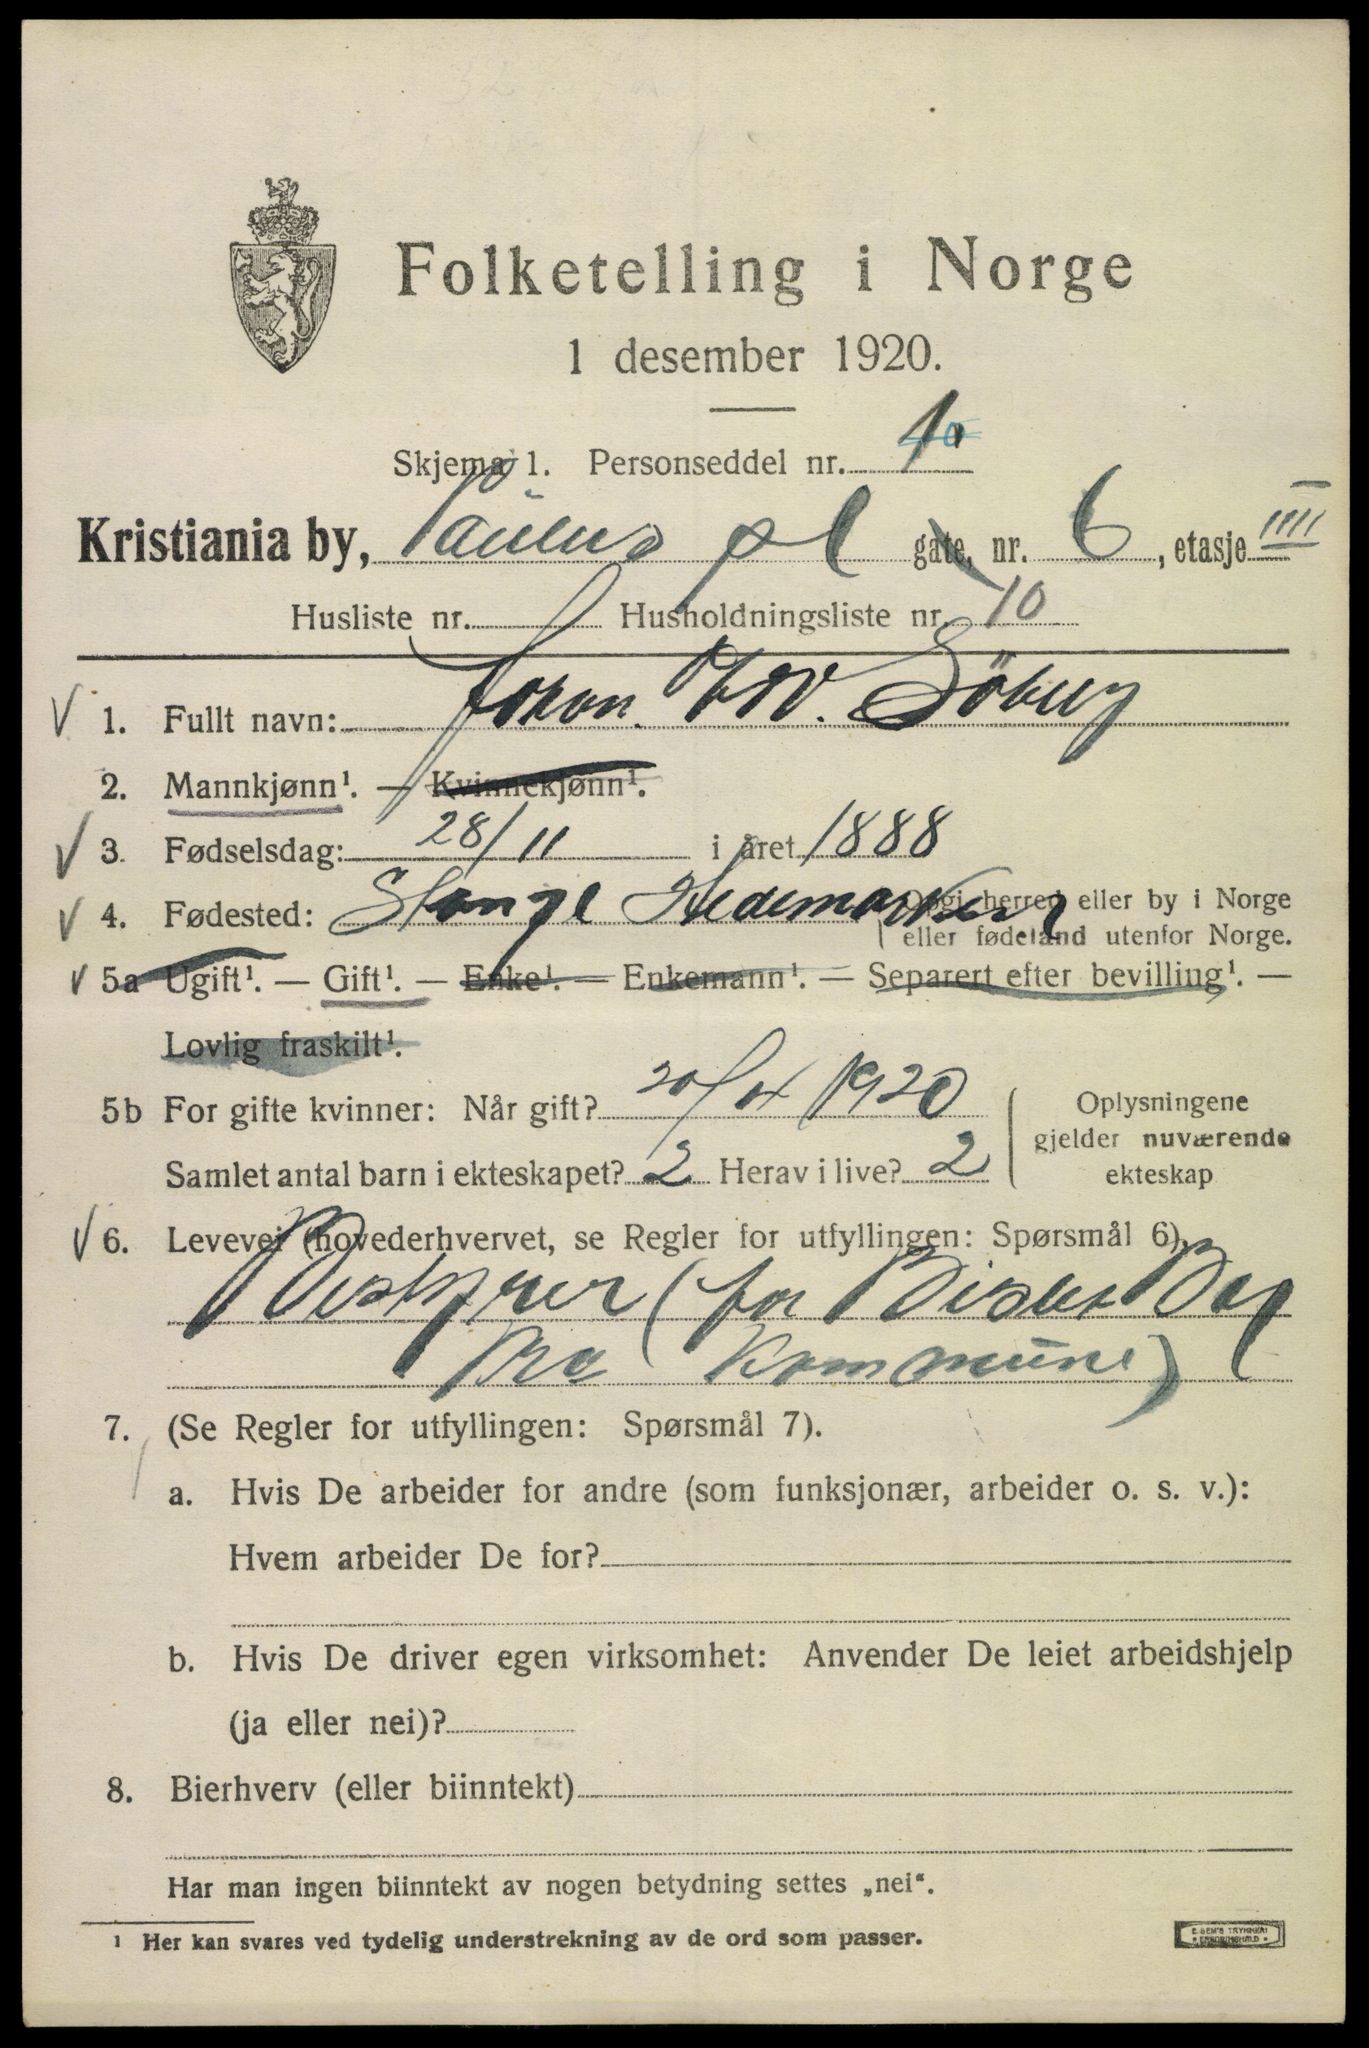 Folketelling i Norge
1 desember 1920.
Skjema 1. Personseddel nr. 1
Kristiania by, Paulus pl gate, nr. 6, etasje IIII
Husliste nr. Husholdningsliste nr. 10
1. Fullt navn: Johan Söberg
2. Mannkjønn¹. — Kvinnekjønn¹.
3. Fødselsdag: 28/11 i året 1888
4. Fødested: Stange Hedemarken Opgi herred eller by i Norge
eller fødeland utenfor Norge.
5a Ugift¹. — Gift¹. — Enke¹. — Enkemann¹. — Separert efter bevilling¹. —
Lovlig fraskilt¹.
5b For gifte kvinner: Når gift? 20/ 1920
Samlet antal barn i ekteskapet? 2 Herav i live? 2
Oplysningene
gjelder nuværende
ekteskap
6. Levevei (hovederhvervet, se Regler for utfyllingen: Spørsmål 6).
(for Bislet Bad
Kra Kommune)
7. (Se Regler for utfyllingen: Spørsmål 7).
a. Hvis De arbeider for andre (som funksjonær, arbeider o. s. v.):
Hvem arbeider De for?
b. Hvis De driver egen virksomhet: Anvender De leiet arbeidshjelp
(ja eller nei)?
8. Bierhverv (eller biinntekt)
Har man ingen biinntekt av nogen betydning settes „nei“.
¹ Her kan svares ved tydelig understrekning av de ord som passer.